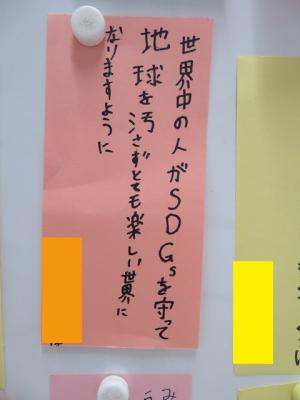 世界中の人がSDGsを守って
地球を汚さずとても楽しい世界に
なりますように
うみ